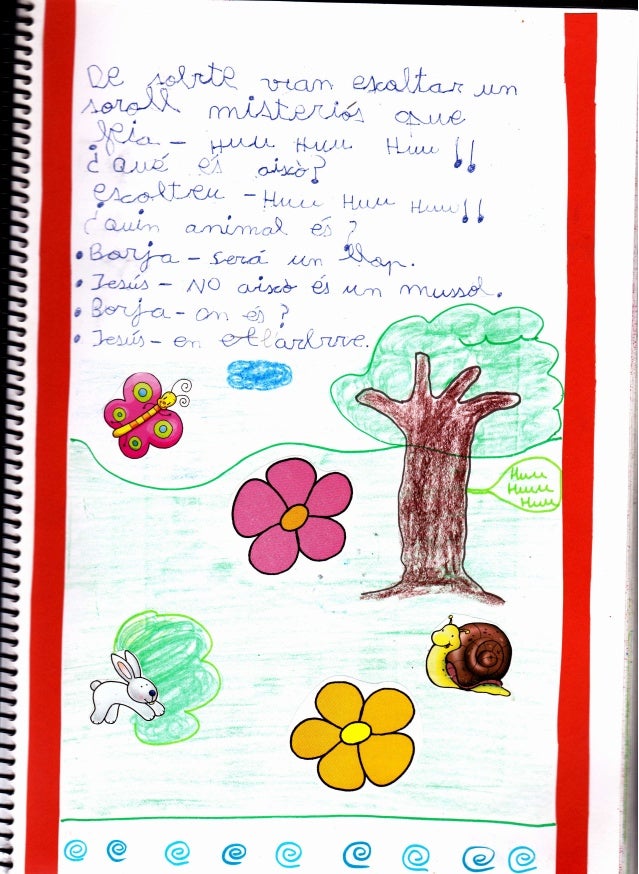 De sobrte vran escoltar un
soroll misteriós que
feia - Huu Huu Huu !!
¿Qué és això?
escolteu - Huu Huu Huu !!
¿quin animal és?
• Borja - será un llop.
• Jesús - NO això és un mussol.
• Borja - on és?
• Jesús - en l'arbrre.
Huu
Huuu
Huu